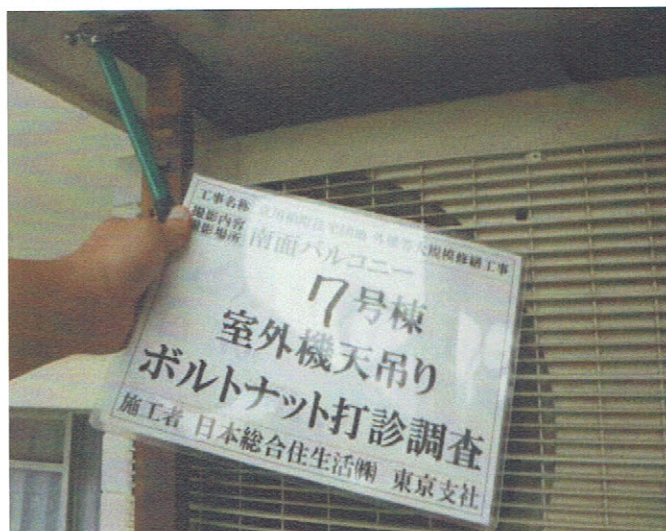 工事名称 立川幸町住宅団地 外壁等大規模修繕工事
撮影内容
撮影場所 南面バルコニー
7号棟
室外機天吊り
ボルトナット打診調査
施工者 日本総合住生活㈱ 東京支社